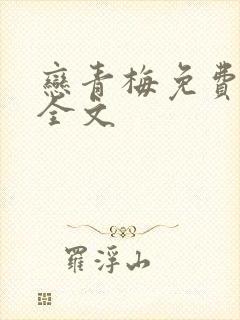 戀青梅免費
全文
羅浮山